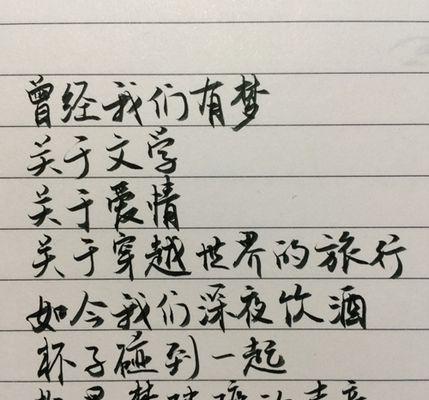 曾经我们有梦
关于文学
关于爱情
关于穿越世界的旅行
如今我们深夜饮酒
杯子碰到一起